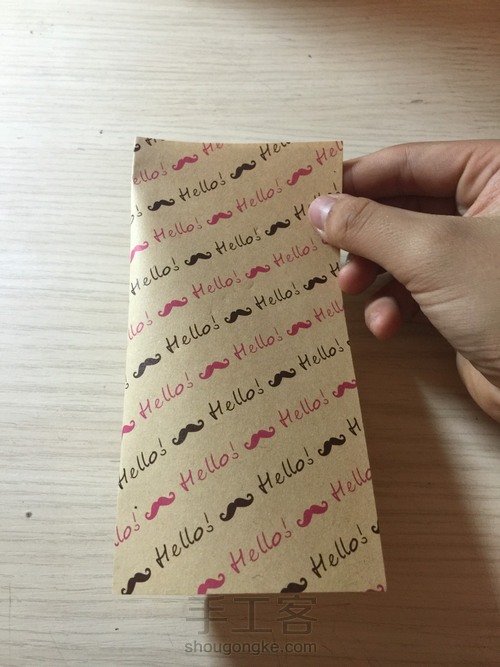 ello! He
o! Hello! He
Hello! Hello! He
Hello! Hello! H
lo! Hello! Hello!
Hello! Hello! H
Hello! Hello! H
Hello! Hello! Hello!
ello! Hello! Hello!
Hello! Hello!
Hello! Hello
Hello!
手工客
shougongke.com